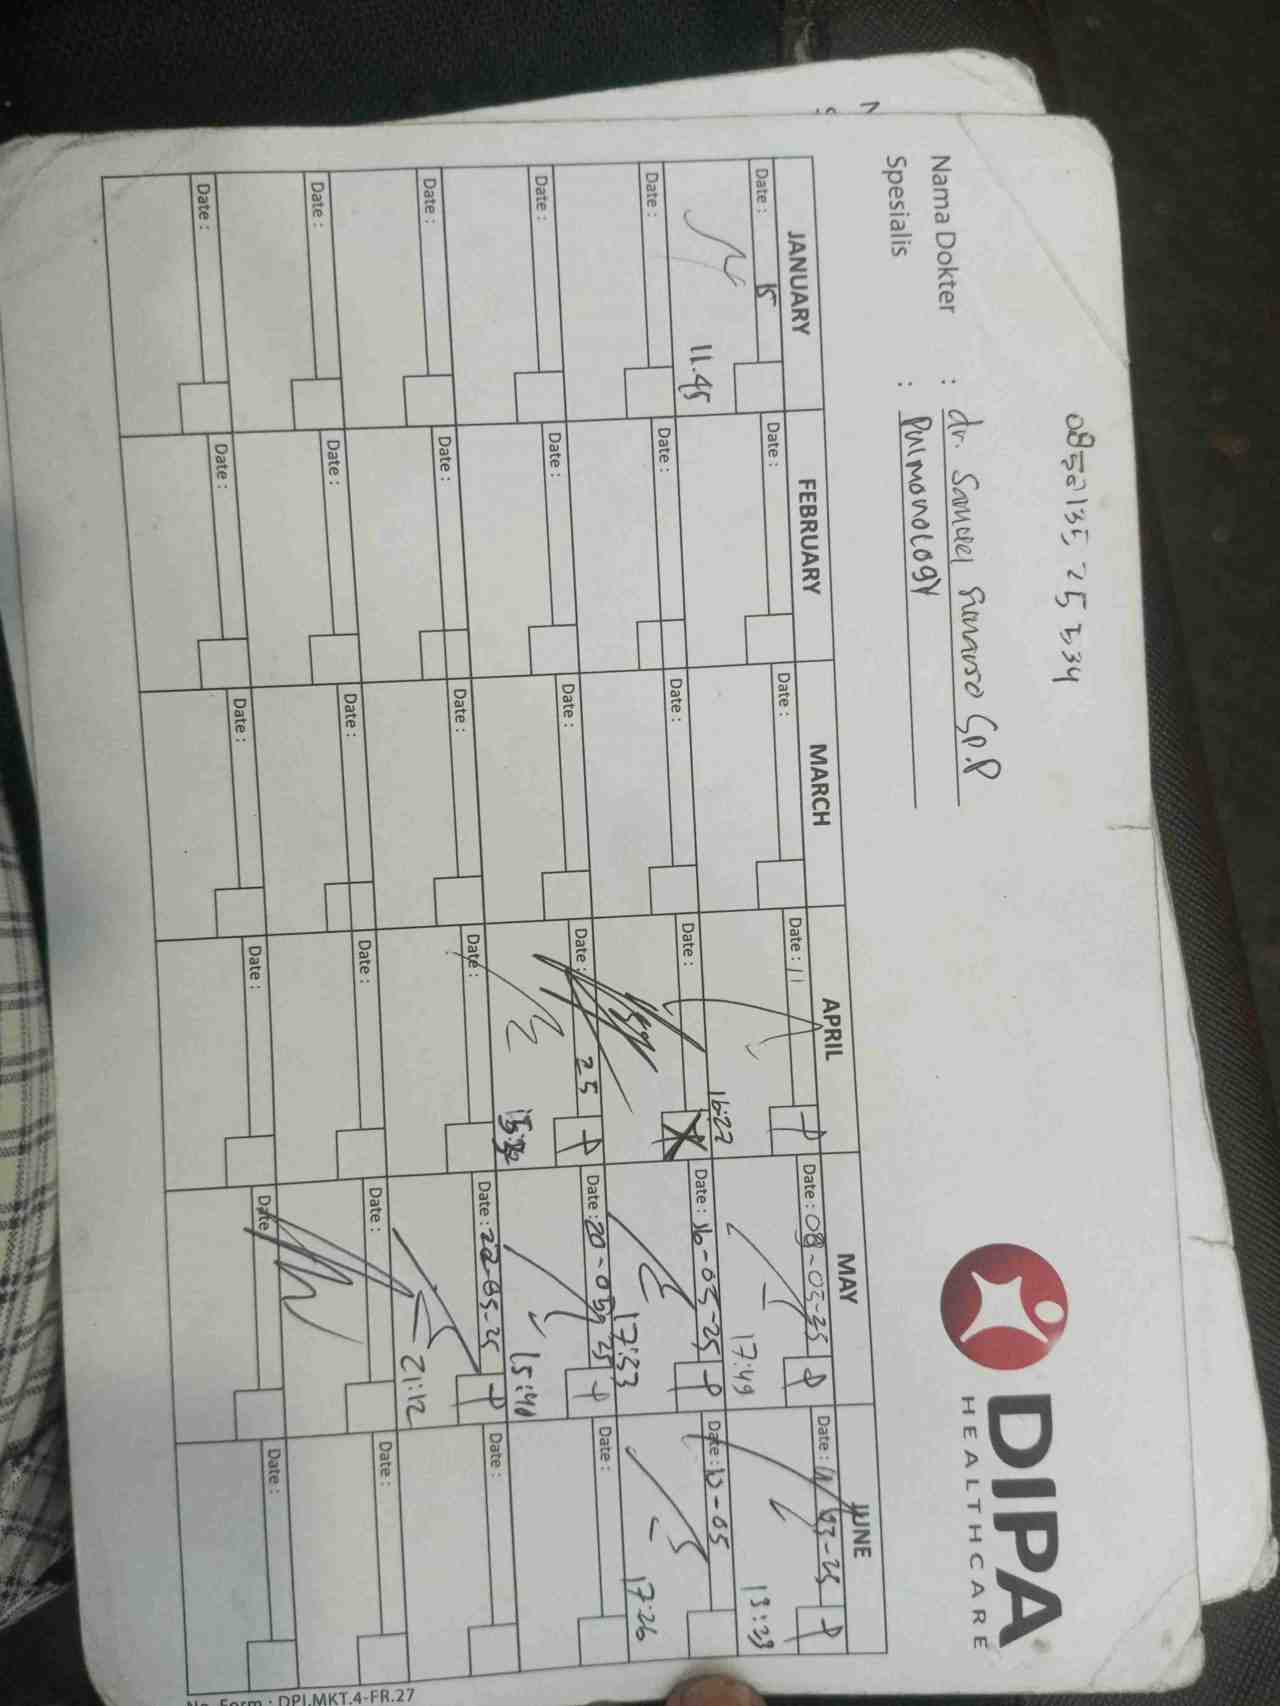 DIPA
HEALTHCARE
Nama Dokter : dr. Samuel Sunarso Sp.P
Spesialis : Pulmonology
JANUARY FEBRUARY MARCH APRIL MAY JUNE
Date : 15 Date : Date : Date : 11 P Date : 08-05-25 P Date : P
11.45 16:22 17:49 13:33
Date : Date : Date : Date : Date : 16-05-25 P Date :
17:33 17:26
Date : Date : Date : Date : 25 P Date : 20-05-25 P Date :
15:40
Date : Date : Date : Date : Date : 22-05-25 P Date :
21:12
Date : Date : Date : Date : Date : Date :
Date : Date : Date : Date : Date Date :
No. Form : DPI.MKT.4-FR.27